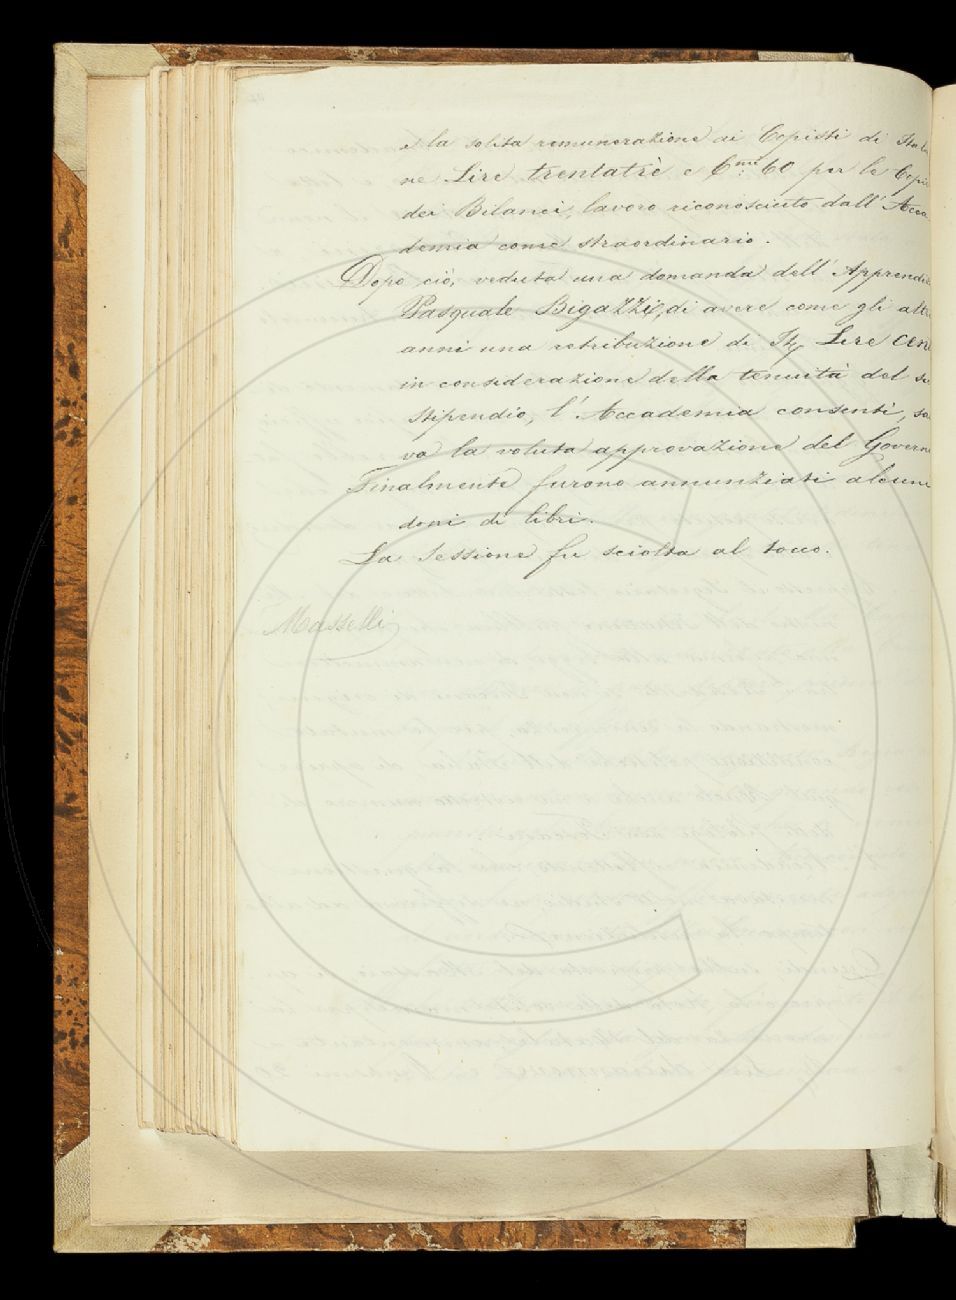 e la solita remunerazione ai Copisti di Italia
ne Lire trentatrè e C.mi 60 per le Copie
dei Bilanci, lavoro riconosciuto dall' Acca
demia come straordinario.
Dopo ciò, veduta una domanda dell' Apprendis
Pasquale Bigazzi, di avere come gli altri
anni una retribuzione di It. Lire cen
in considerazione della tenuità del su
stipendio, l' Accademia consentì, sal
va la voluta approvazione del Governo
Finalmente furono annunziati alcuni
doni di libri.
La Sessione fu sciolta al tocco.
Masselli